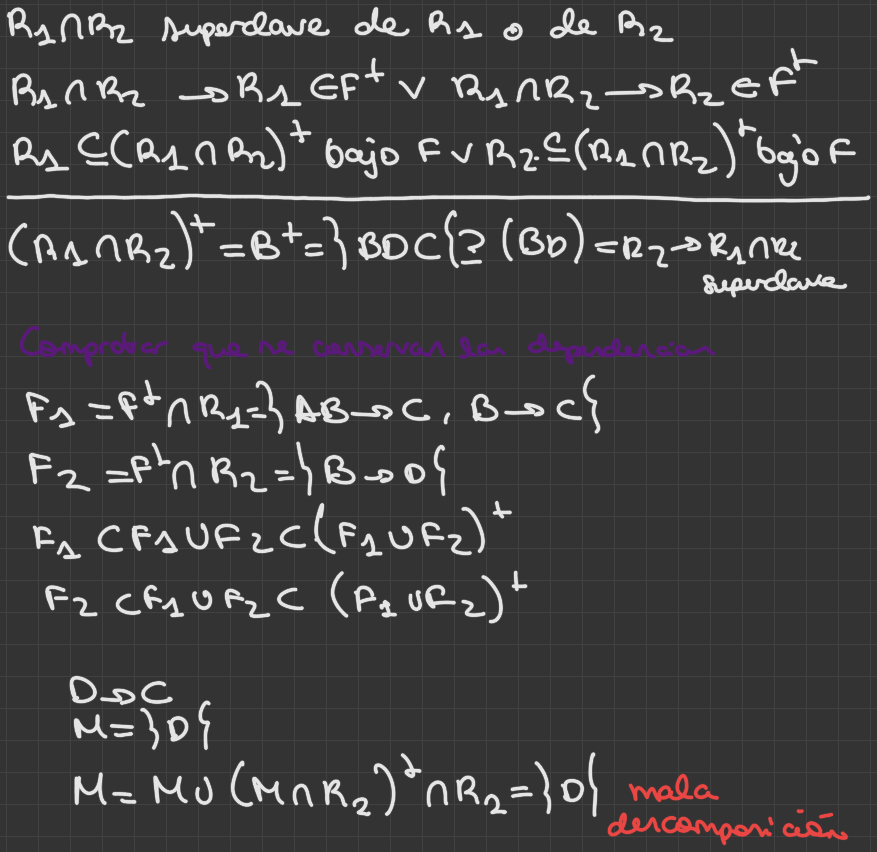 R1∩R2 superclave de R1 o de R2
R1∩R2 → R1 ∈ F⁺ ∨ R1∩R2 → R2 ∈ F⁺
R1 ⊆ (R1∩R2)⁺ bajo F ∨ R2 ⊆ (R1∩R2)⁺ bajo F
(R1∩R2)⁺ = B⁺ = }BDC{ ⊇ (BD) = R2 → R1∩R2
superclave
Comprobar que se conservan las dependencias
F1 = F⁺∩R1 = }AB→C, B→C{
F2 = F⁺∩R2 = }B→D{
F1 ⊂ F1∪F2 ⊂ (F1∪F2)⁺
F2 ⊂ F1∪F2 ⊂ (F1∪F2)⁺
D→C
M = }D{
M = M∪(M∩R2)⁺∩R2 = }D{ mala
descomposición